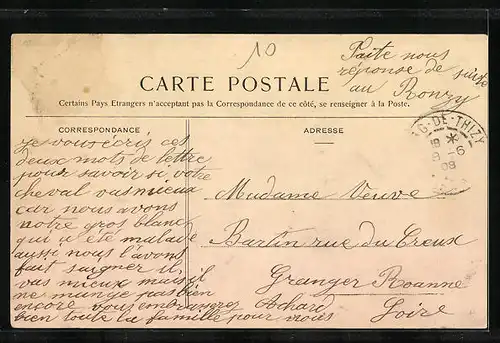 10
Faite nous
réponse de suite
au Ronzy
CARTE POSTALE
Certains Pays Etrangers n'acceptant pas la Correspondance de ce côté, se renseigner à la Poste.
CORRESPONDANCE
je vous écris ces
deux mots de lettre
pour savoir si votre
cheval vas mieux
car nous avons
notre gros blanc
qui a été malade
ausse nous l'avons
fait saigner il
vas mieux mais il
ne mange pas bien
encore vous embrasserez
bien toute la famille pour nous
Achard
ADRESSE
Madame Veuve
Bartin rue du Creux
Granger Roanne
Loire
G-DE-THIZY
9-6
08